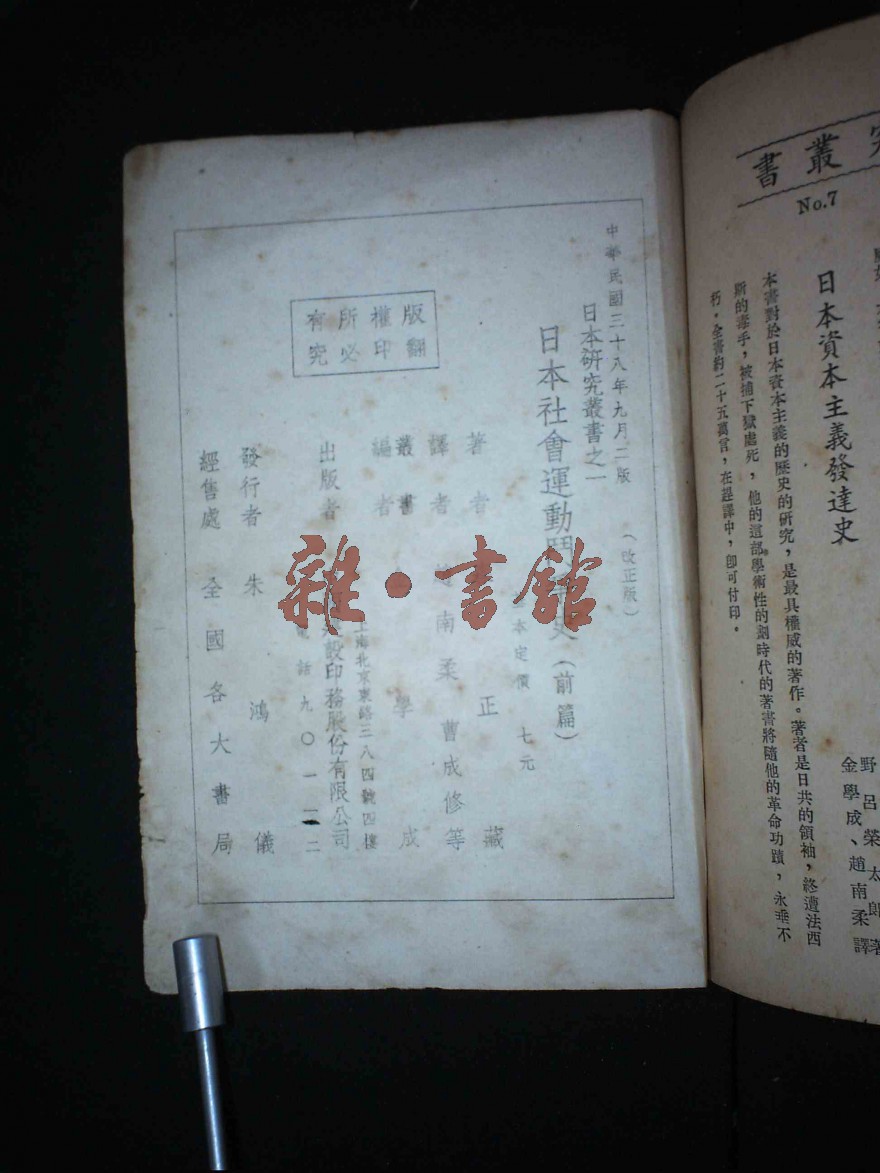 究叢書
No.7
日本資本主義發達史
野呂榮太郎著
金學成、趙南柔譯
本書對於日本資本主義的歷史的研究，是最具權威的著作。著者是日共的領袖，終遭法西
斯的毒手，被捕下獄處死，他的這部學術性的劃時代的著書將隨他的革命功蹟，永垂不
朽。全書約二十五萬言，在趕譯中，卽可付印。
中華民國三十八年九月二版（改正版）
日本研究叢書之一
日本社會運動鬥史（前篇）
本定價 七元
著者 正藏
譯者 南柔 曹成修等
叢書編者 學成
出版者 設印務股份有限公司
上海北京東路三八四號四樓
電話九〇一一二
發行者 朱鴻儀
經售處 全國各大書局
版權所有
翻印必究
雜·書館